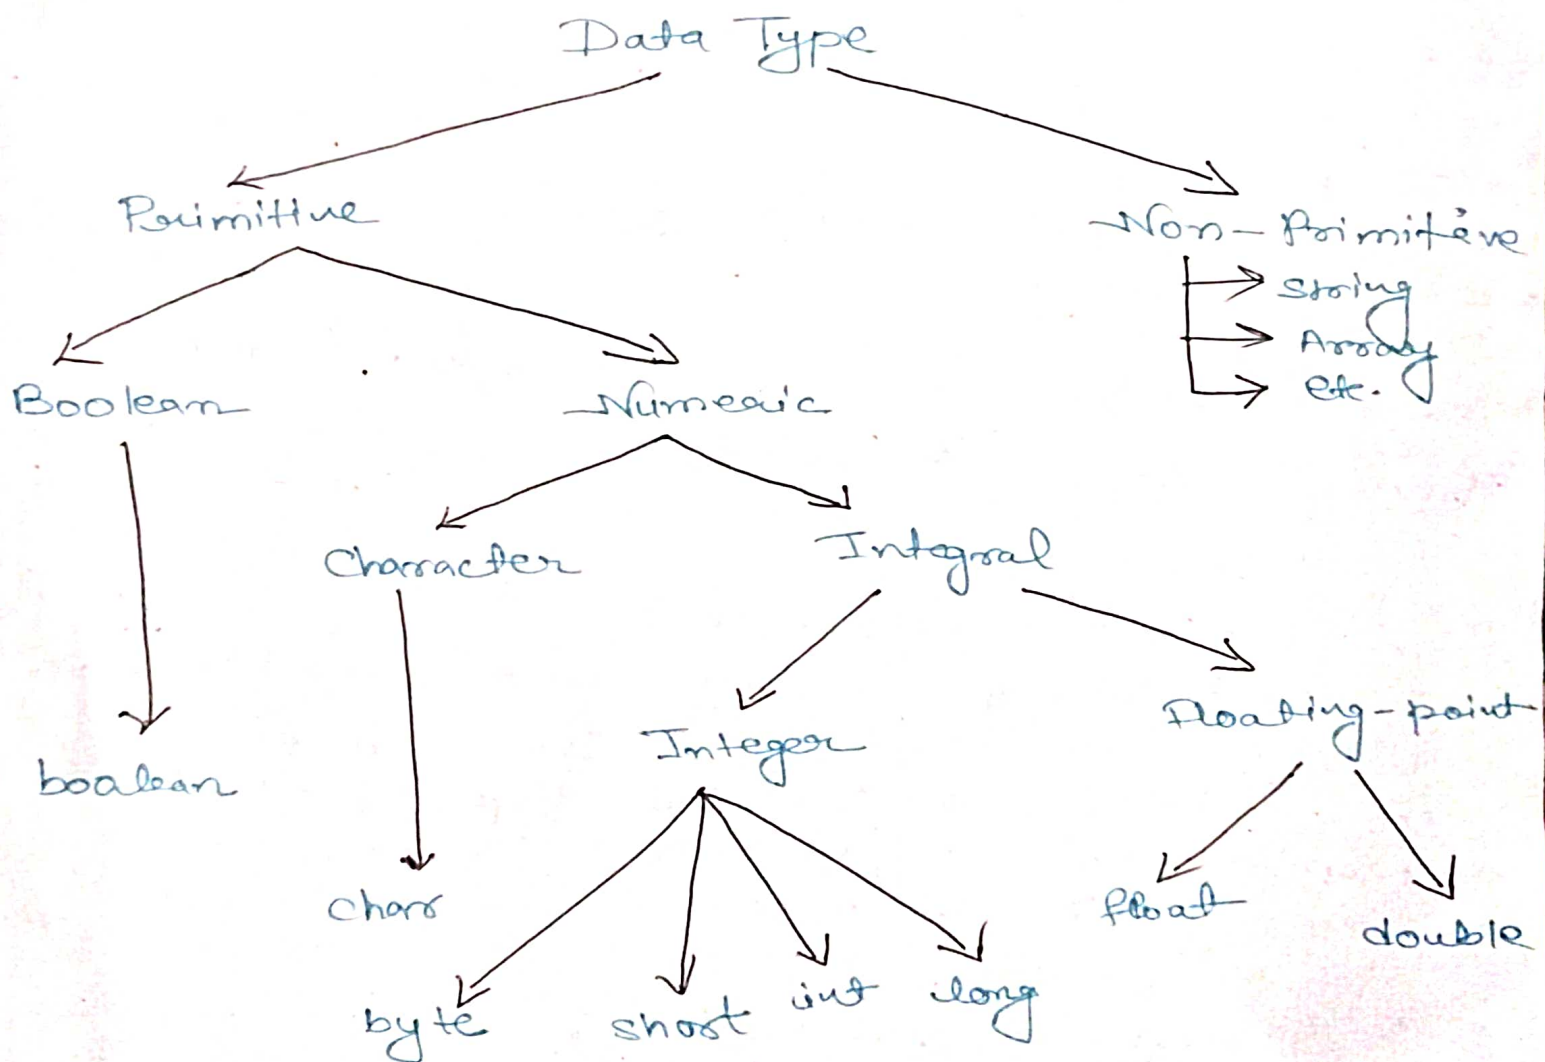 Data Type
Primitive
Non-Primitive
String
Array
etc.
Boolean
Numeric
Character
Integral
boolean
Integer
Floating-point
char
float
double
byte
short
int
long